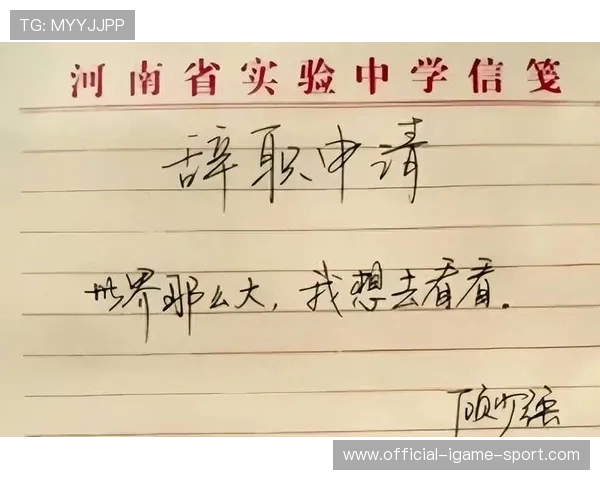 TG: MYYJJPP
河南省实验中学信笺
辞职申请
世界那么大，我想去看看。
顾少强
www.official-igame-sport.com